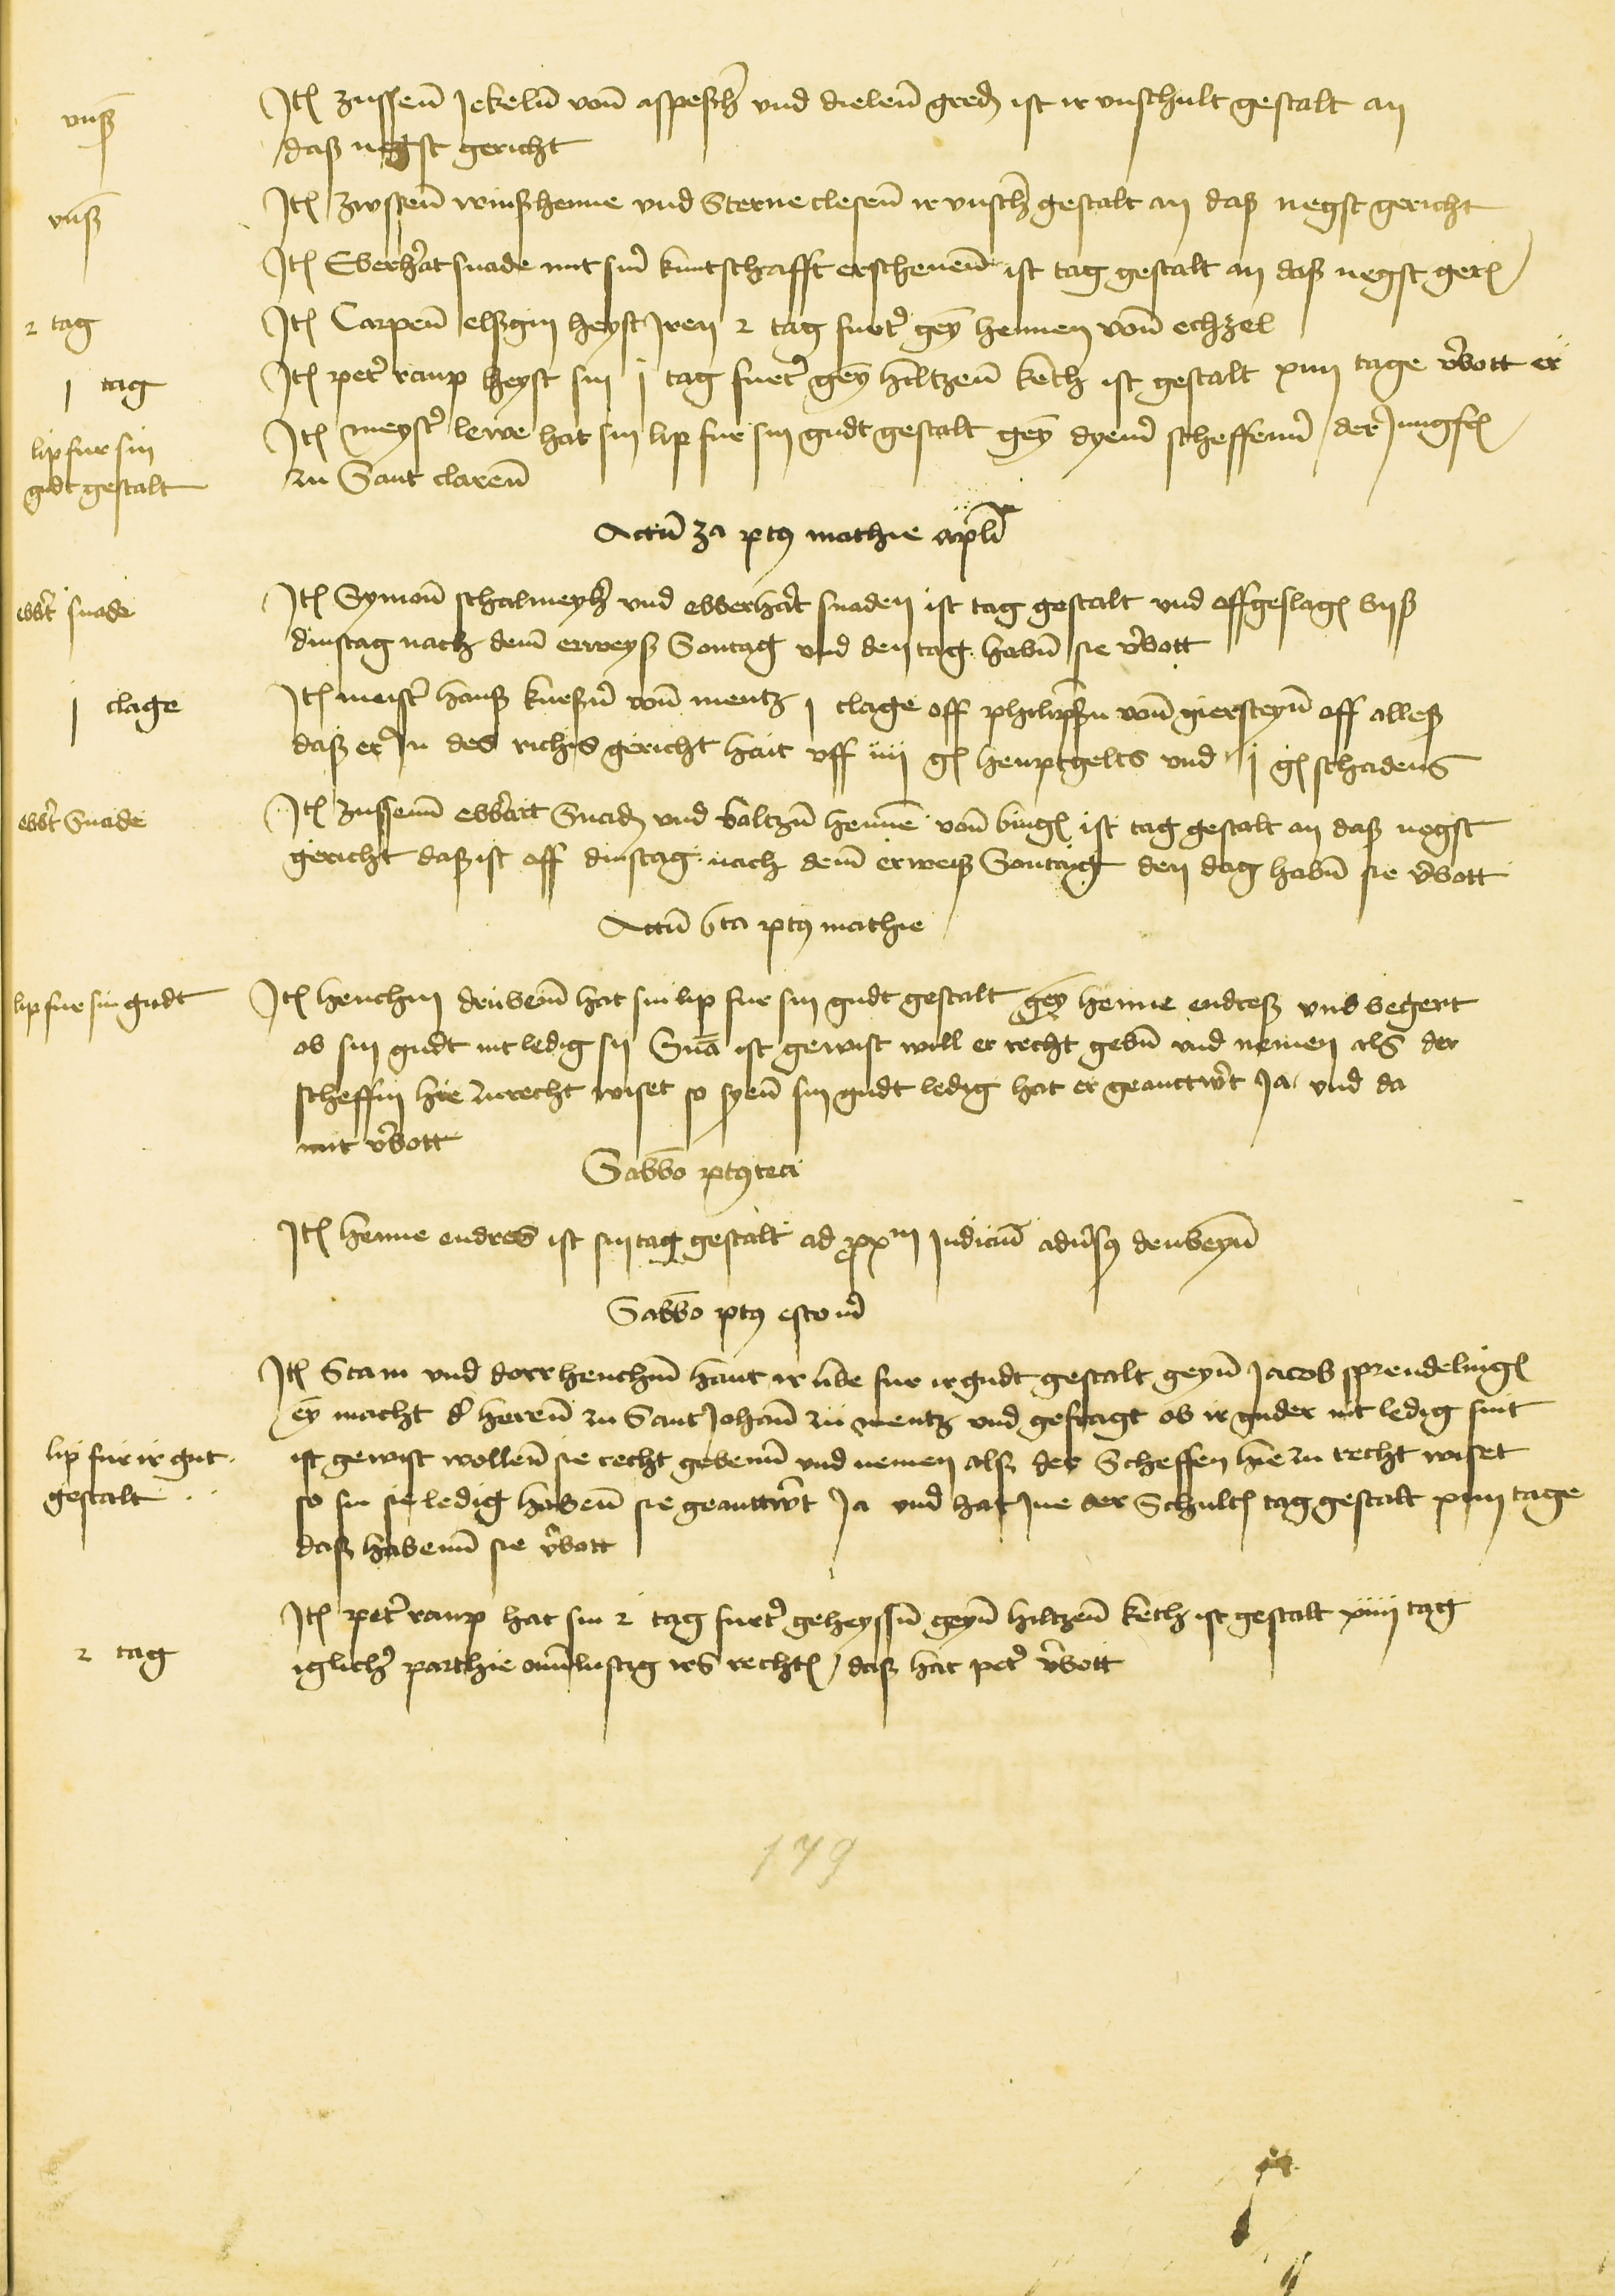 vnß
Itē zussen̄ Jekeln̄ von̄ aspeßhē vnd dielen̄ gredē ist ir vnschult gestalt an
daß negst gericht
vnß
Itē zwssen̄ winßhenne vnd Sterneclesen̄ ir vnschē gestalt an daß negst gericht
Itē Eberhāt snade mit sin̄ kuntschafft erschenen̄ ist tag gestalt an daß negst gerē
2 tag
Itē Carpen̄ elßgin heyst Iren 2 tag furt̄ geȳ hennen von̄ echzel
j tag
Itē pet̄ raup heyst sin j tag furt̄ geȳ hiltzen̄ kech ist gestalt xiiij tage v̄bott er
lip fur sin
gudt gestalt
Itē meyst̄ lewe hat sin lip fur sin gudt gestalt geȳ dyem̄ scheffenn̄ der Jungfē
zu Sant claren̄
Actū 3a ptꝯ mathie apłi
ebb̄t snade
Itē Symon̄ schalmeyh̄ vnd ebberhāt snaden ist tag gestalt vnd offgeslagē biß
dinstag nach dem̄ erweyß Sontag vnd den tag habn̄ sie v̄bott
j clage
Itē meist̄ hanß knußn̄ von̄ mentz j clage off philipßn von̄ giersteyn̄ off alleß
daß er In des richis gericht hait vff iiij gē heuptgelts vnd j gē schadens
ebb̄t Snade
Itē zussenn̄ ebb̄art Snadē vnd baltzn̄ henne von̄ bingē ist tag gestalt an daß negst
gericht daß ist off dinstag nach dem̄ erweiß Sontag den dag habn̄ sie v̄bott
Actū 6ta ptꝯ mathie
lip fur sin gudt
Itē henchin drubein̄ hat sin lip fur sin gudt gestalt geȳ henne endreß vnd begert
ob sin gudt nit ledig sij Snā ist gewist will er recht gebn̄ vnd nemen als der
scheffin hie zurecht wiset so syen̄ sin gudt ledig hat er geanttw̄t Ja vnd da
mit v̄bott
Sabb̄o ptꝯ reci
Itē henne endres ist sin tag gestalt ad ꝓxm Indiciū adūsꝯ denbeyn̄
Sabb̄o ptꝯ estom̄
lip fur ir gut
gestalt
Itē Stam vnd dorrhenchin̄ hant ir libe fur ir gudt gestalt geyn̄ Jacob sprendelingē
eȳ macht d̄ heren̄ zu Sant Johan̄ zu mentz vnd gefragt ob ir guder nit ledig sint
ist gewist wollen̄ sie recht gebenn̄ vnd nemen alß der Scheffen hie zu recht wiset
so sin sie ledig haben̄ sie geanttw̄t Ja vnd hat Ine der Schultē tag gestalt xiiij tage
daß habenn̄ sie v̄bott
2 tag
Itē pet̄ raup hat sin 2 tag furt̄ geheyssn̄ geyn̄ hiltzen̄ kech ist gestalt xiiij tag
iglich̄ parthie onūlustig irs rechtē daß hat pet̄ v̄bott
179